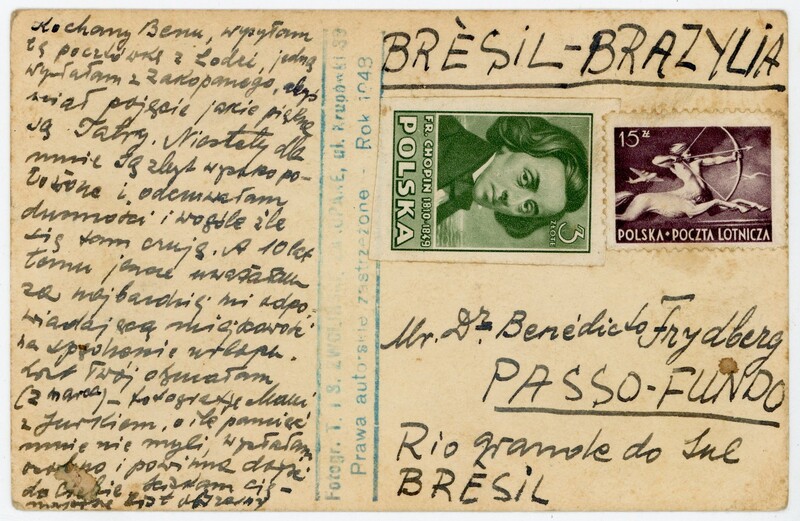 Kochany Benu, wysyłam
tą pocztówkę z Łodzi, jedną
wysłałam z Zakopanego, abyś
miał pojęcie jakie piękne
są Tatry. Niestety dla
mnie są zbyt wysoko po-
łożone i odczuwałam
duszności i wogóle źle
się tam czuję. A 10 lat
temu jeszcze uważałam
za najbardziej mi odpo-
wiadającą miejscowość
na spędzenie urlopu.
List Twój otrzymałam
(z marca) - fotografję
z Jurkiem, o ile pamięć
mnie nie myli, wysłałam
osobno i powinna dojść
do Ciebie
list obszerny
Fotogr. T. i S. ul. Krupówki 39
Prawa autorskie zastrzeżone - Rok 1948
BRÈSIL-BRAZYLIA
FR. CHOPIN 1810-1849
POLSKA
3 ZŁOTE
15 ZŁ
POLSKA • POCZTA LOTNICZA
Mr. Dr. Benédicto Frydberg
PASSO-FUNDO
Rio grande do Sul
BRÈSIL